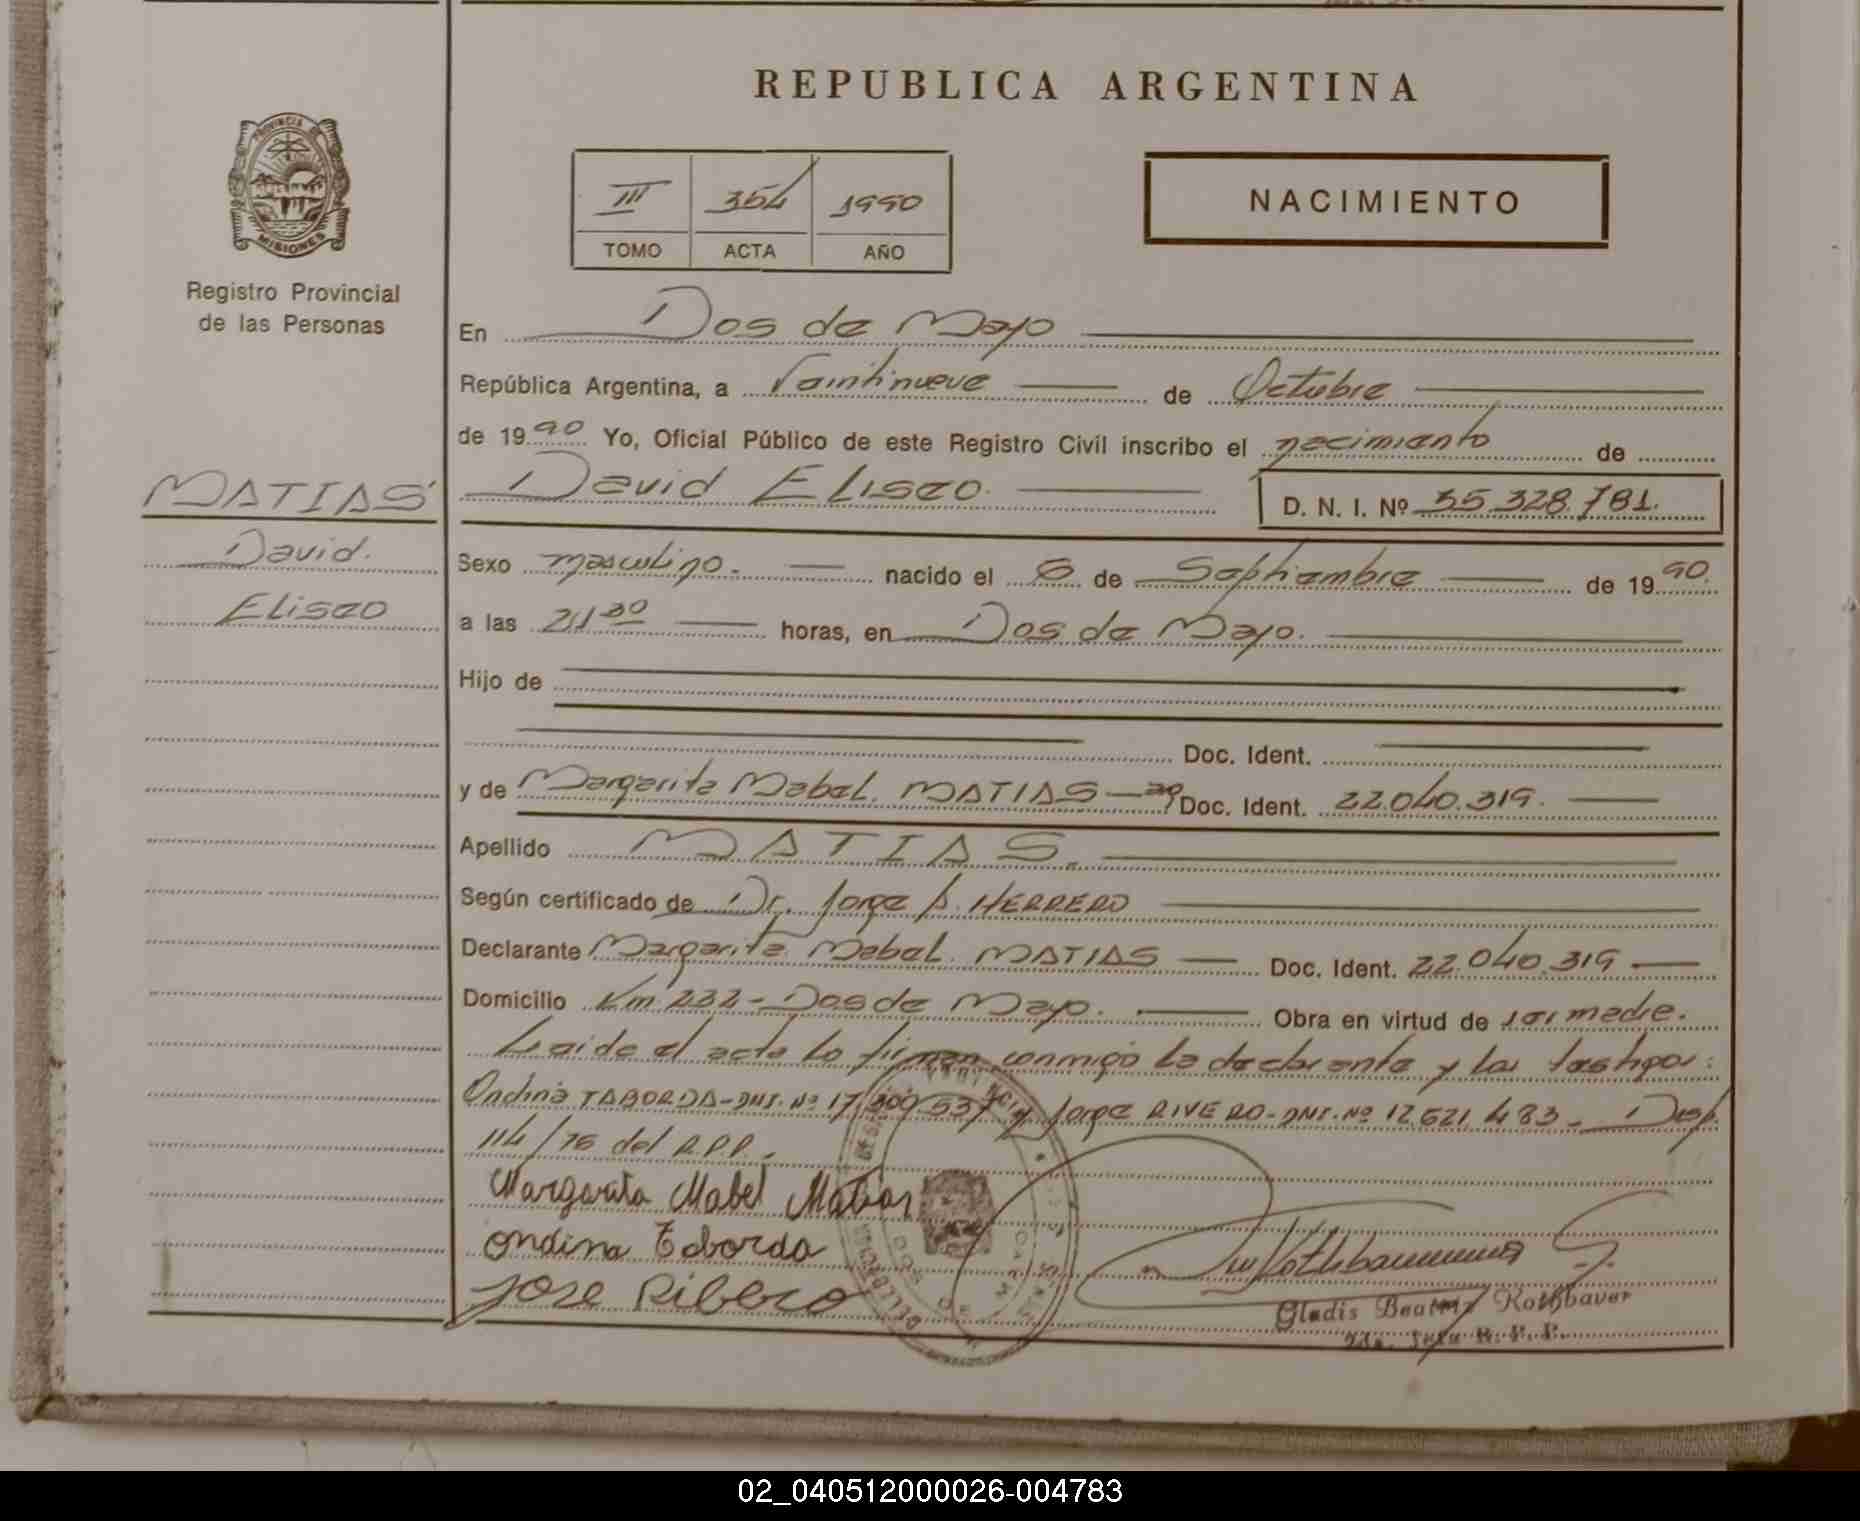 REPUBLICA ARGENTINA
PROVINCIA DE
MISIONES
Registro Provincial
de las Personas
III 354 1990
TOMO ACTA AÑO
NACIMIENTO
En Dos de Mayo
República Argentina, a Veintinueve de Octubre
de 1990 Yo, Oficial Público de este Registro Civil inscribo el nacimiento de
David Eliseo. D. N. I. Nº 35.328.781.
MATIAS
David.
Eliseo
Sexo masculino. nacido el 6 de Septiembre de 1990.
a las 21 30 horas, en Dos de Mayo.
Hijo de
Doc. Ident.
y de Margarita Mabel. MATIAS Doc. Ident. 22.040.319.
Apellido MATIAS.
Según certificado de Dr. Jorge A. HERRERO
Declarante Margarita Mabel. MATIAS Doc. Ident. 22.040.319
Domicilio Km 232 - Dos de Mayo. Obra en virtud de ser madre.
Leida el acta la firman conmigo la declarante y los testigos:
Ondina TABORDA - DNI. Nº 17.300.537 y Jorge RIVERO - DNI. Nº 12.621.483 - Disp.
114/76 del R.P.P.
Margarita Mabel Matias
ondina Taborda
Jose Ribero
Gladis Beatriz Rothbaver
R. P. P.
02_040512000026-004783